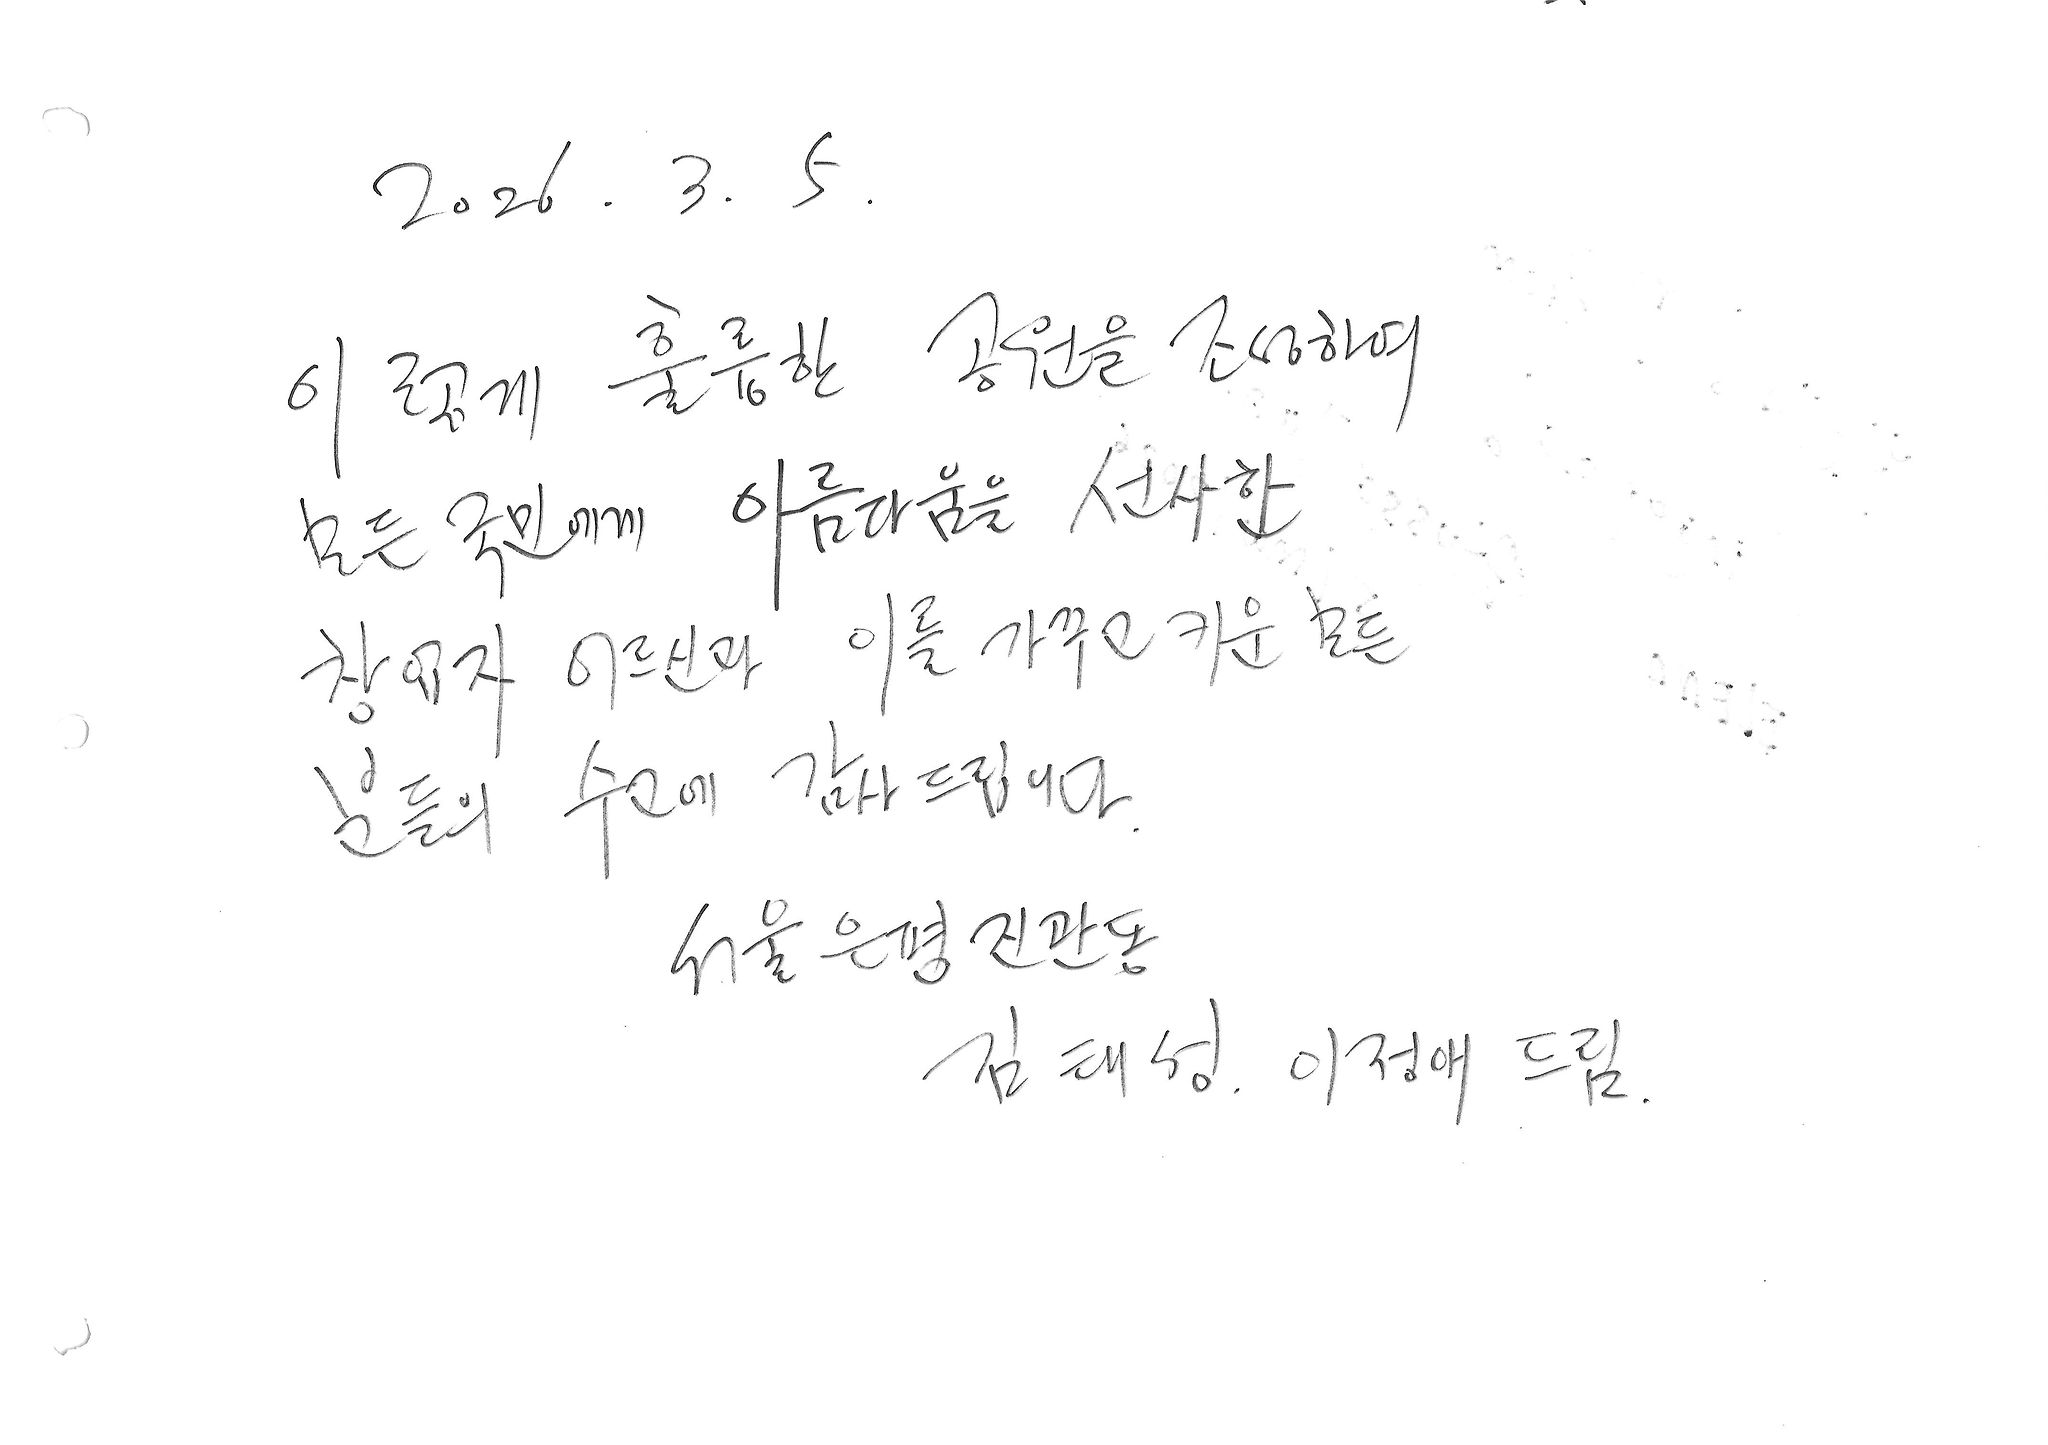 2026. 3. 5.
이렇게 훌륭한 공원을 조성하여
모든 국민에게 아름다움을 선사한
창업자 어르신과 이를 가꾸고 키운 모든
분들의 수고에 감사드립니다.
서울 은평 진관동
김태성. 이정애 드림.